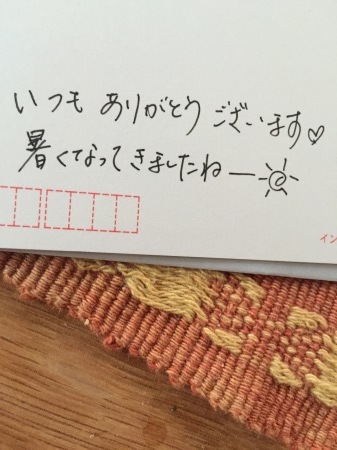 いつも ありがとう ございます♡
暑くなってきましたねー☀
イン